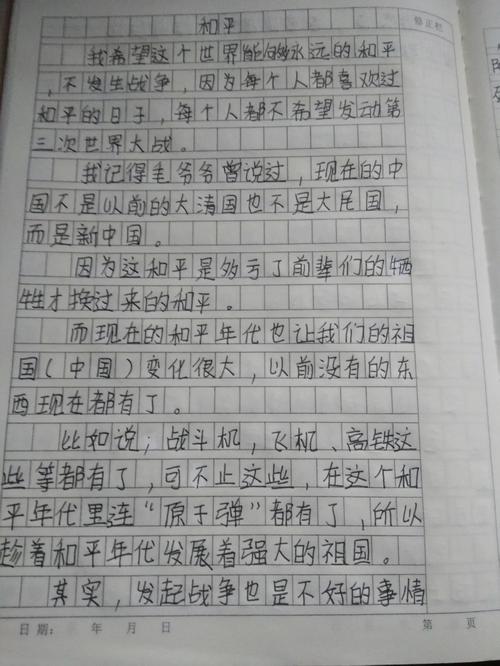 和平
修正栏
我希望这个世界能够永远的和平
，不发生战争，因为每个人都喜欢过
和平的日子，每个人都不希望发动第
三次世界大战。
我记得毛爷爷曾说过，现在的中
国不是以前的大清国也不是大尾国，
而是新中国。
因为这和平是多亏了前辈们的牺
牲才换过来的和平。
而现在的和平年代也让我们的祖
国（中国）变化很大，以前没有的东
西现在都有了。
比如说；战斗机，飞机、高铁这
些等都有了，可不止这些，在这个和
平年代里连“原子弹”都有了，所以
趁着和平年代发展着强大的祖国。
其实，发起战争也是不好的事情
日期： 年 月 日 第 页